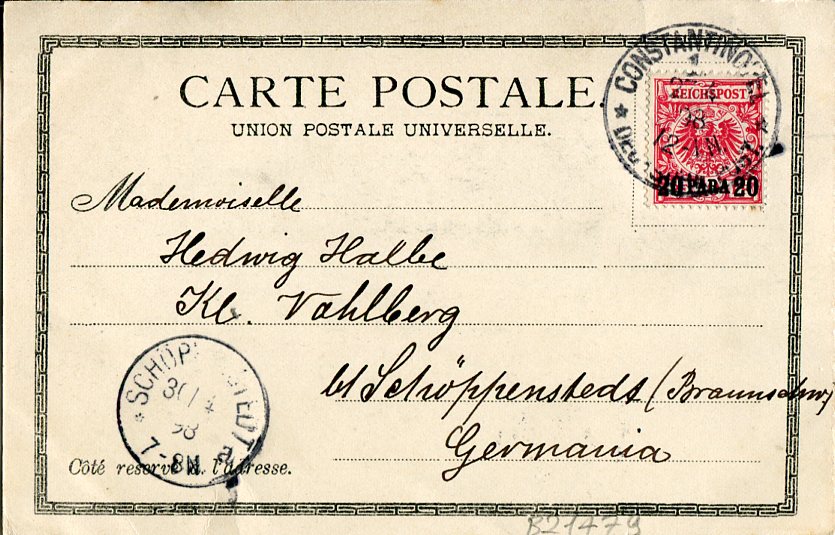 CARTE POSTALE.
UNION POSTALE UNIVERSELLE.
CONSTANTINOPEL 1
98
12
REICHSPOST
20 PARA 20
Mademoiselle
Hedwig Halbe
Kl. Vahlberg
b/ Schöppenstedt (Braunschw)
Germania
SCHÖP STEDT
30/4
98
7-8N a
Côté reservé à l'adresse.
B21479